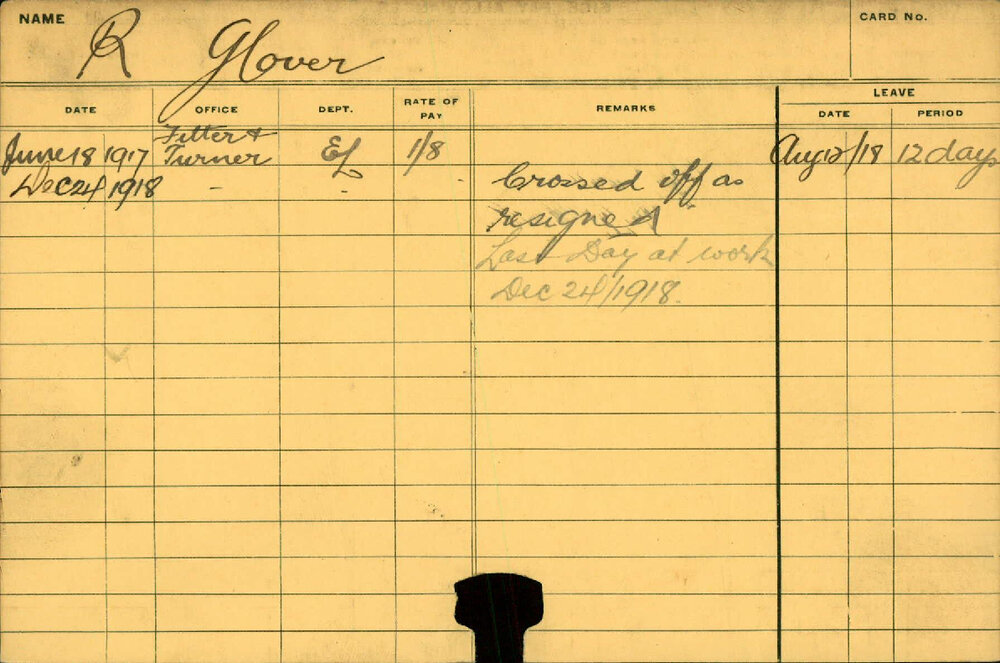 NAME R Glover CARD No.
DATE OFFICE DEPT. RATE OF PAY REMARKS LEAVE
DATE PERIOD
June 18 1917 Fitter + Turner EL 1/8 Aug 12/18 12 days
Dec 24 1918 - - - Crossed off as
resigned
Last Day at work
Dec 24/1918.